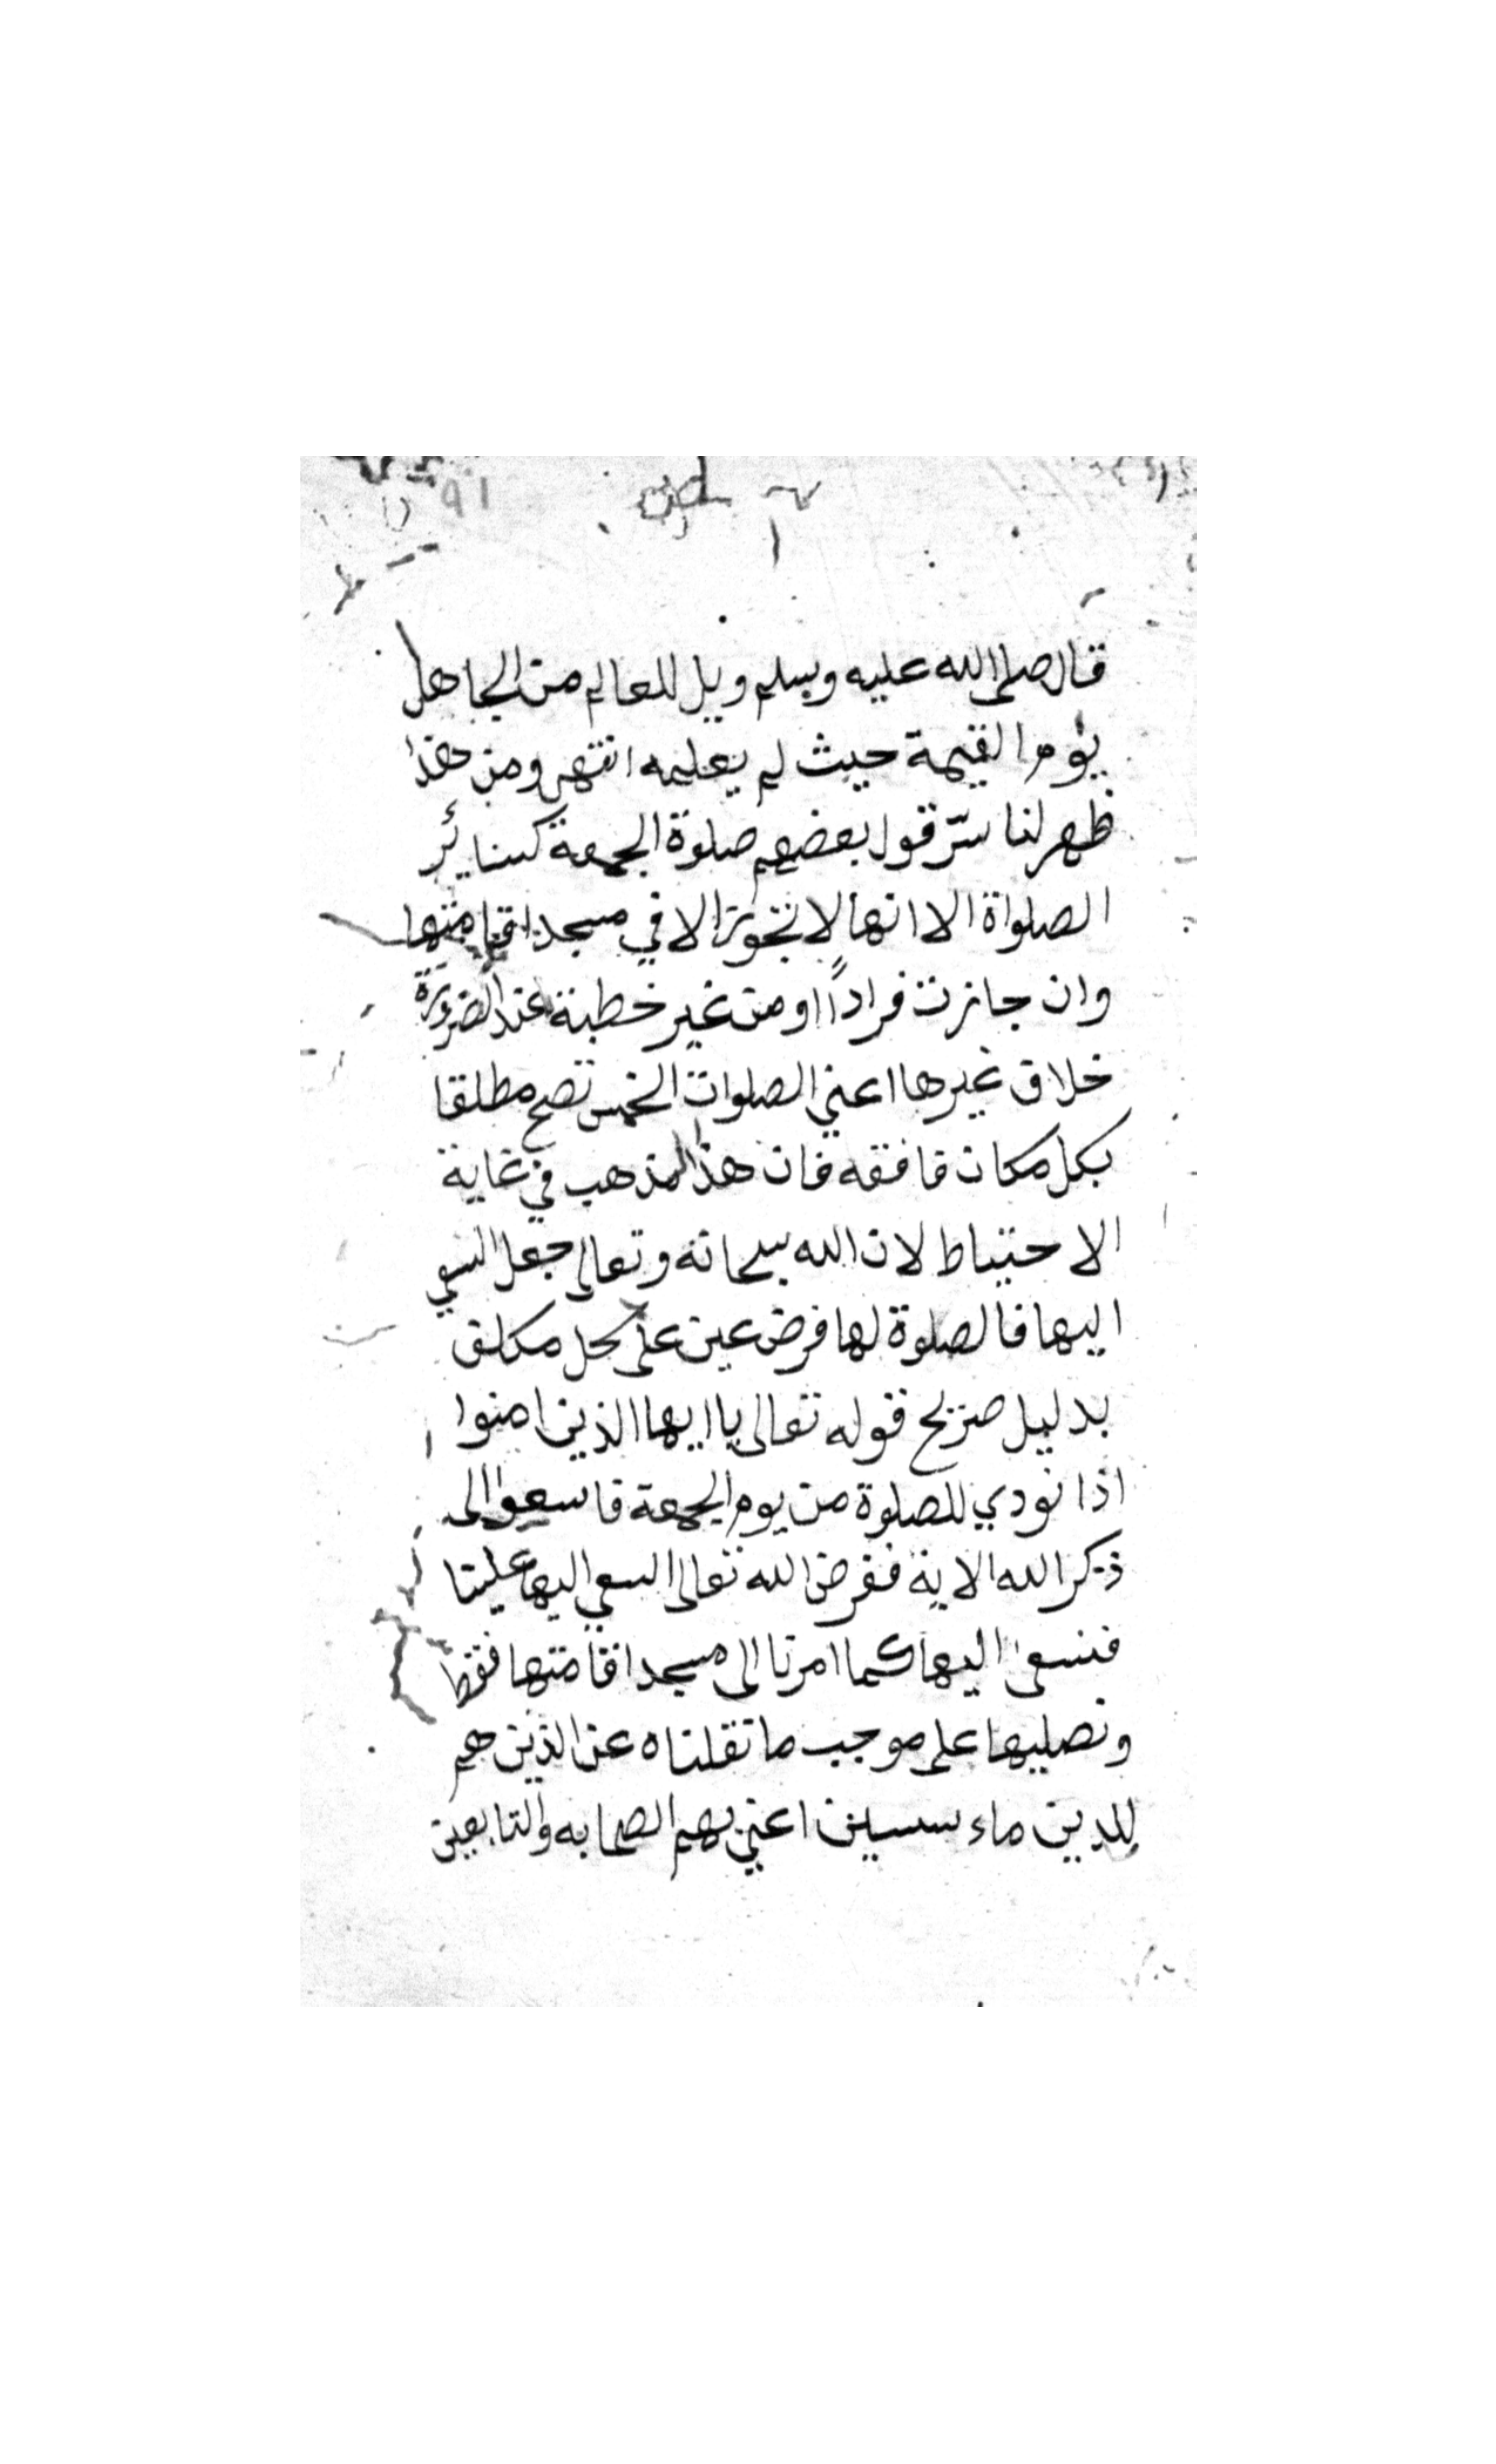 قال صلى الله عليه وسلم ويل للعالم من الجاهل
يوم القيمة حيث لم يعلمه انتهى ومن هذا
ظهر لنا سرّ قول بعضهم صلوة الجمعة كسائر
الصلواة الا انها لا تجوز الا في مسجد اقامتها
وان جازت فراداً او من غير خطبة عند الضرورة
خلاف غيرها اعني الصلوات الخمس تصح مطلقا
بكل مكان فافقه فان هذا المذهب في غاية
الاحتياط لان الله سبحانه وتعالى جعل السعي
اليها فالصلوة لها فرض عين على كل مكلف
بدليل صريح قوله تعالى يا ايها الذين امنوا
اذا نودي للصلوة من يوم الجمعة فاسعوا الى
ذكر الله الاية ففرض الله تعالى السعي اليها علينا
فنسعى اليها كما امرنا الى مسجد اقامتها فقط
ونصليها على موجب ما نقلناه عن الذين هم
للدين ماء سسين اعني بهم الصحابه والتابعين